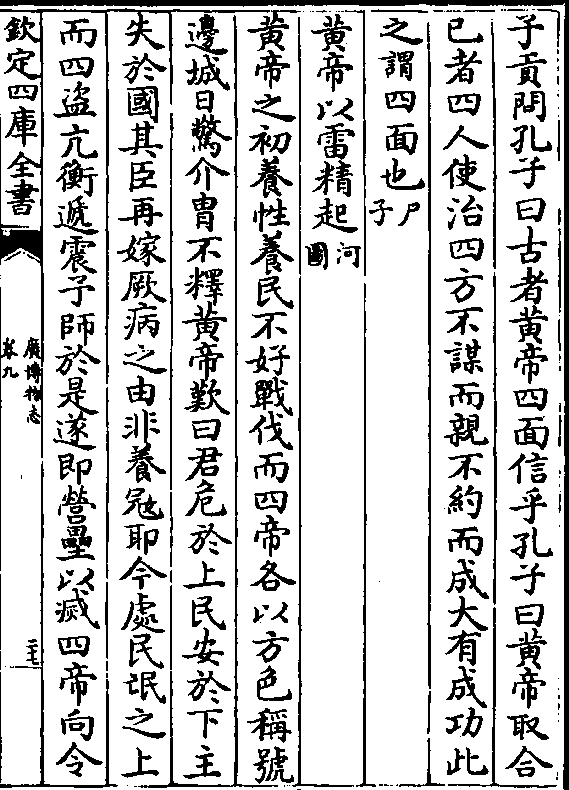 子貢問孔子曰古者黄帝四面信乎孔子曰黄帝取合
已者四人使治四方不謀而親不約而成大有成功此
之謂四面也尸子
黄帝以雷精起河圖
黄帝之初養性養民不好戰伐而四帝各以方色稱號
邊城日驚介胄不釋黄帝歎曰君危於上民安於下主
失於國其臣再嫁厥病之由非養冦耶今處民氓之上
而四盜亢衡遞震于師於是遂即營壘以滅四帝向令
欽定四庫全書
廣博物志
卷九
二十七